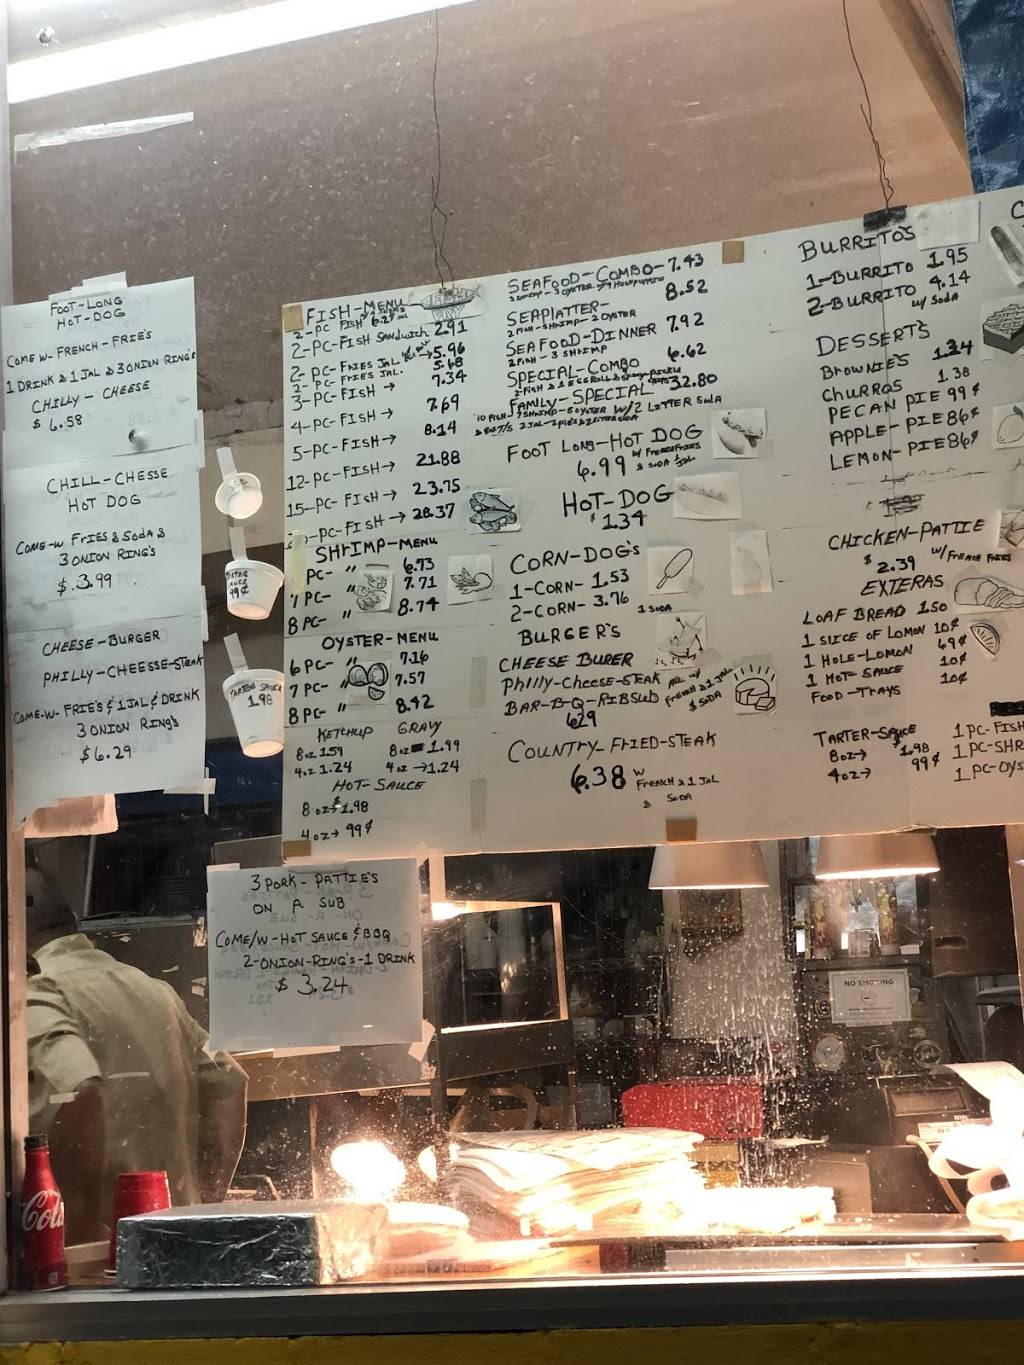 FOOT-LONG
HOT-DOG
COME W-FRENCH-FRIE'S
1 DRINK & 1 JAL & 3 ONION RING'S
CHILLY - CHEESE
$ 6.58
CHILL-CHESSE
HOT DOG
COME-W FRIES & SODA &
3 ONION RING'S
$ 3.99
CHEESE-BURGER
PHILLY-CHEESSE-STEAK
COME-W-FRIE'S & 1 JAL & DRINK
3 ONION RING'S
$ 6.29
TARTER SAUCE 99¢
1.98
FISH-MENU
2-PC FISH
2-PC-FISH SANDWICH 2.91
2-PC-FRIES JAL. → 5.96
2-PC-FRIES JAL. 5.68
3-PC-FISH → 7.34
4-PC-FISH → 7.69
5-PC-FISH → 8.14
12-PC-FISH → 21.88
15-PC-FISH → 23.75
-PC-FISH → 28.37
SHRIMP-MENU
PC- " 6.73
7 PC- " 7.71
8 PC- " 8.74
OYSTER-MENU
6 PC- " 7.16
7 PC- " 7.57
8 PC- " 8.42
KETCHUP GRAVY
8 oz 1.59 8 oz 1.99
4 oz 1.24 4 oz → 1.24
HOT-SAUCE
8 oz → $1.98
4 oz → 99¢
SEAFOOD-COMBO-7.43
3 SHRIMP - 3 OYSTER
SEAPLATTER- 8.52
2 FISH - SHRIMP - 2 OYSTER
SEAFOOD-DINNER 7.92
2 FISH - 3 SHRIMP
SPECIAL-COMBO 6.62
2-FISH & 2 EGG ROLL &
FAMILY-SPECIAL 32.80
10 FISH-7 SHRIMP-5 OYSTER W/2 LITTER SODA
FOOT LONG-HOT DOG
6.99 W/ FRENCH FRIES
& SODA 1 JAL
HOT-DOG
$ 1.34
CORN-DOG'S
1-CORN- 1.53
2-CORN- 3.76 1 SODA
BURGER'S
CHEESE BURER
PHILLY-CHEESE-STEAK
BAR-B-Q-RIBSUB
ALL W/
FRENCH & 1 JAL
& SODA
6.29
COUNTRY-FRIED-STEAK
6.38 W
FRENCH & 1 JAL
& SODA
BURRITO'S
1-BURRITO 1.95
2-BURRITO 4.14
W/ SODA
DESSERT'S
BROWNIE'S 1.24
CHURROS 1.38
PECAN PIE 99¢
APPLE-PIE 86¢
LEMON-PIE 86¢
CHICKEN-PATTIE
$ 2.39 W/ FRENCH FRIES
EXTERAS
LOAF BREAD 1.50
1 SLICE OF LOMON 10¢
1 HOLE-LOMON 69¢
1 HOT SAUCE 10¢
FOOD-TRAYS 10¢
TARTER-SAUCE
8 oz → $1.98
4 oz → 99¢
1 PC-FISH
1 PC-SHR
1 PC-OYS
3 PORK-PATTIE'S
ON A SUB
COME/W-HOT SAUCE & BBQ
2-ONION-RING'S-1 DRINK
$ 3.24
NO SMOKING